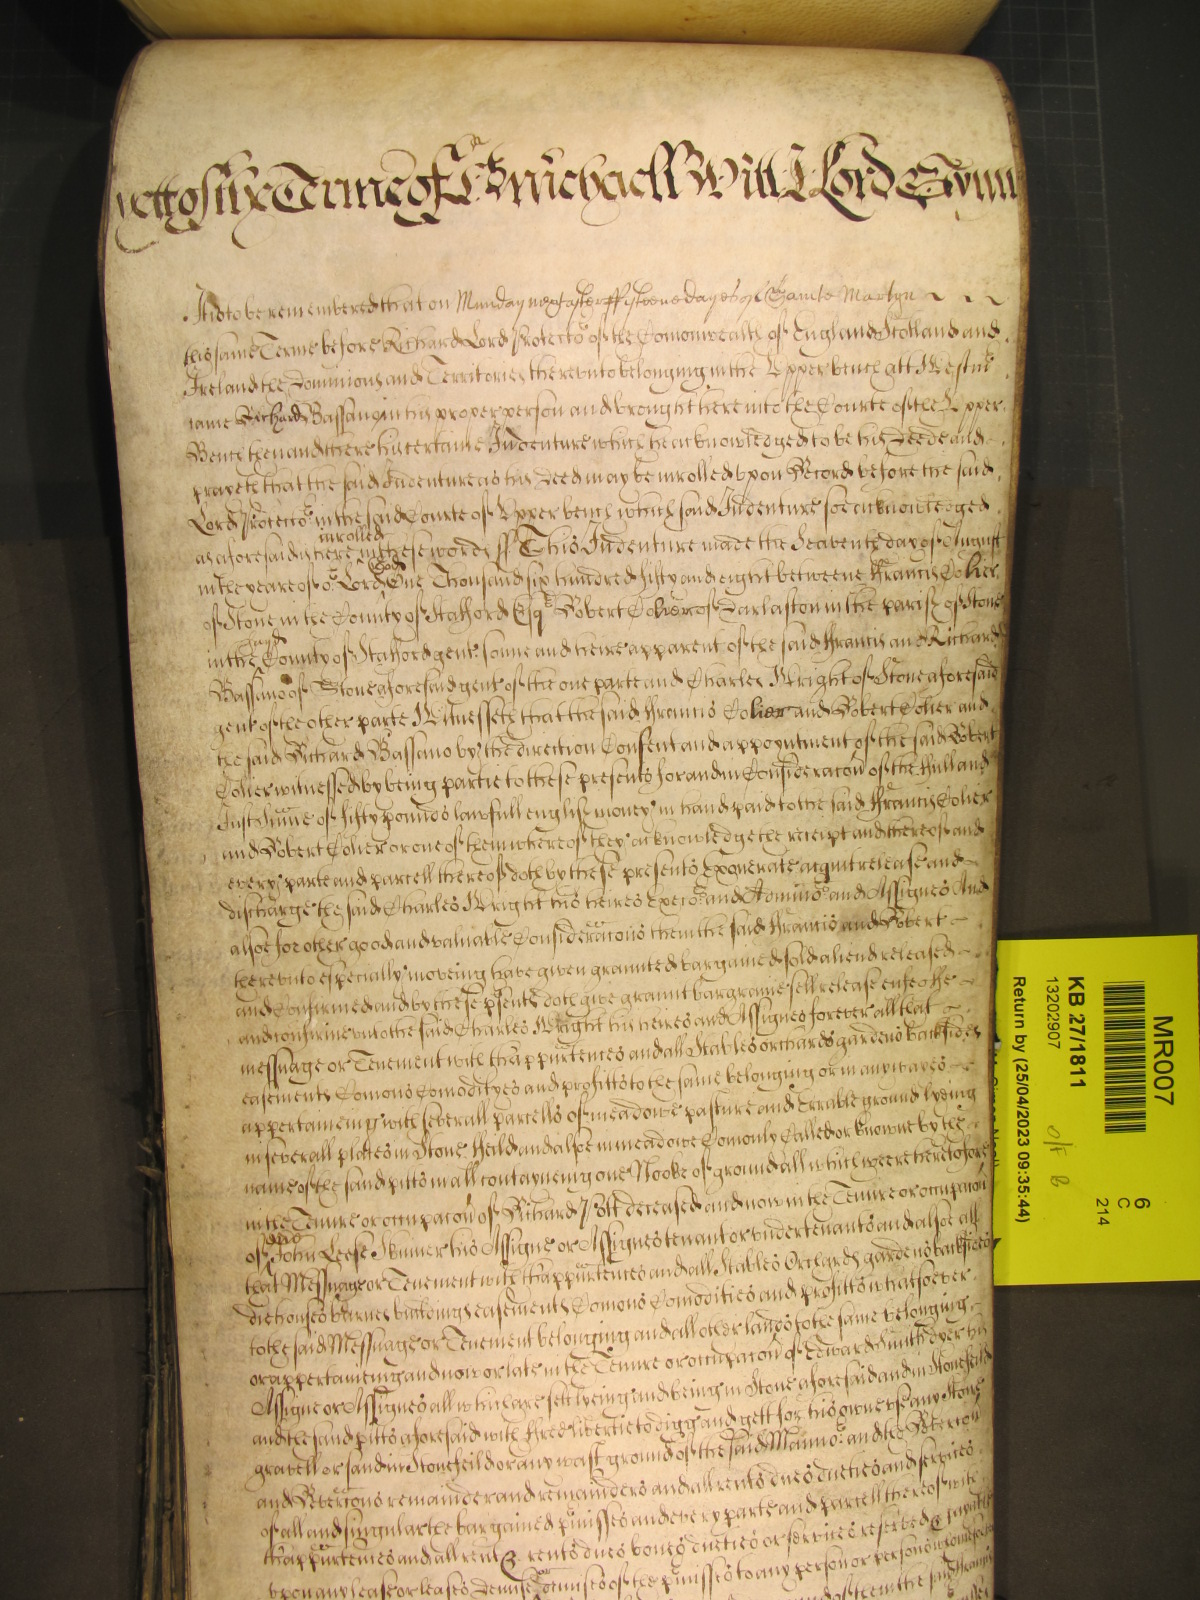 yett of the Terme of St Michaell Witt Lord
It is to be remembered that on Munday next after fifteene dayes of Sainte Martyn
this same Terme before Richard Lord Protector of the Comonwealth of England Scotland and
Ireland the Dominions and Territories thereunto belonging in the Upper bench att Westmr
came Richard Bassano in his proper person and brought here into the Courte of the Upper
Bench then and there his certaine Indenture which he acknowledged to be his Deede and
prayeth that the said Indenture as his Deed may be inrolled upon Record before the said
Lord Protector in the said Courte of Upper bench which said Indenture soe acknowledged
as aforesaid is here inrolled in these words ff This Indenture made the Seaventh day of August
in the yeare of or Lord God One Thousand six hundred fifty and eight betweene Francis Colier
of Stone in the County of Stafford Esqr Robert Colier of Darlaston in the parish of Stone
in the said County of Stafford gent sonne and heire apparent of the said Francis and Richard
Bassano of Stone aforesaid gent of the one parte and Charles Wright of Stone aforesaid
gent of the other parte Witnesseth that the said Francis Colier and Robert Colier and
the said Richard Bassano by the direction Consent and appoyntment of the said Robert
Colier witnessed by being partie to these presents for and in Consideracon of the full and
Just Sume of fifty pounds lawfull english money in hand paid to the said Francis Colier
and Robert Colier or one of them whereof they acknowledge the receipt and thereof and
every parte and parcell thereof doth by these presents exonerate acquit release and
discharge the said Charles Wright his heires Execrs and Adminrs and Assignes And
alsoe for other good and valuable Consideracons them the said Francis and Robert
thereunto especially moveing have given graunted bargained sold aliend released
and Confirmed and by these psents doth give graunt bargaine sell release enfeoffe
and confirme unto the said Charles Wright his heires and Assignes forever all that
messuage or Tenement with thappurtences and all Stables orchards gardens backsides
easements Comons Comodityes and profitts to the same belonging or in any wayes
apperteineing with severall parcells of meadowe pasture and errable ground lyeing
in severall places in Stone Feild and alsoe in meadowe Comonly Called or knowne by the
name of the sand pitts in all contayneing one Nooke of ground all which were heretofore
in the Tenure or occupacon of Richard Pott deceased and now in the Tenure or occupacon
of John Leese Skinner his Assigne or Assignes tenant or undertenants and alsoe all
that Messuage or Tenement with thappurtences and all Stables Orchards gardens backsides
outhouses barnes buildings easements Comons Comodities and profitts whatsoever
to the said Messuage or Tenement belonging and all other lands to the same belonging
or apperteineing and now or late in the Tenure or occupacon of Edward Smith Dyer his
Assigne or Assignes all which are sett lyeing and being in Stone aforesaid and in Stonefeild
and the sand pitts aforesaid with Free libertie to digg and gett for his owne use any Stone
gravell or sand in Stonefeild or any wast ground of the said Mannor and the Revercon
and Revercons remainder and remainders and all rents dues dueties and services
of all and singular the bargained pmisses and every parte and parcell thereof with
thappurtences and all rent & rents dues boons dueties or services reserved & payable
upon any lease or leases demise or demises of the pmisses to any person or persons whomsoever
MR007
6
C
214
KB 27/1811
13202907
Return by (25/04/2023 09:35:44)